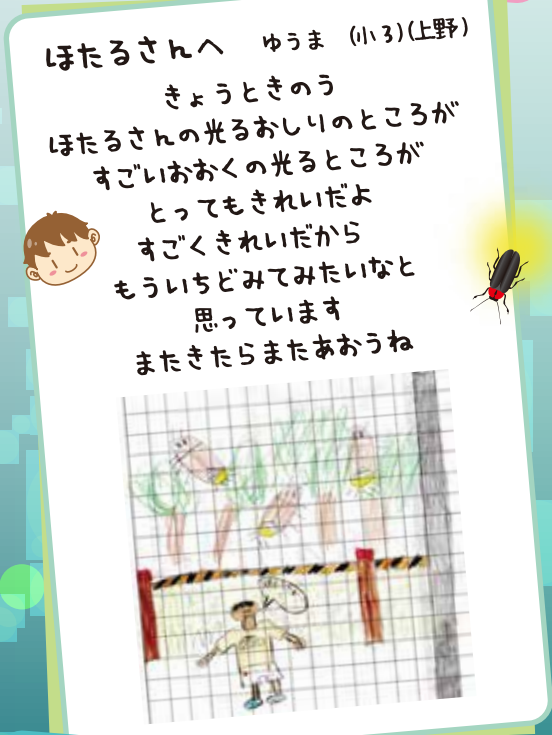 ほたるさんへ　ゆうま　(小3)(上野)
きょうときのう
ほたるさんの光るおしりのところが
すごいおおくの光るところが
とってもきれいだよ
すごくきれいだから
もういちどみてみたいなと
思っています
またきたらまたあおうね